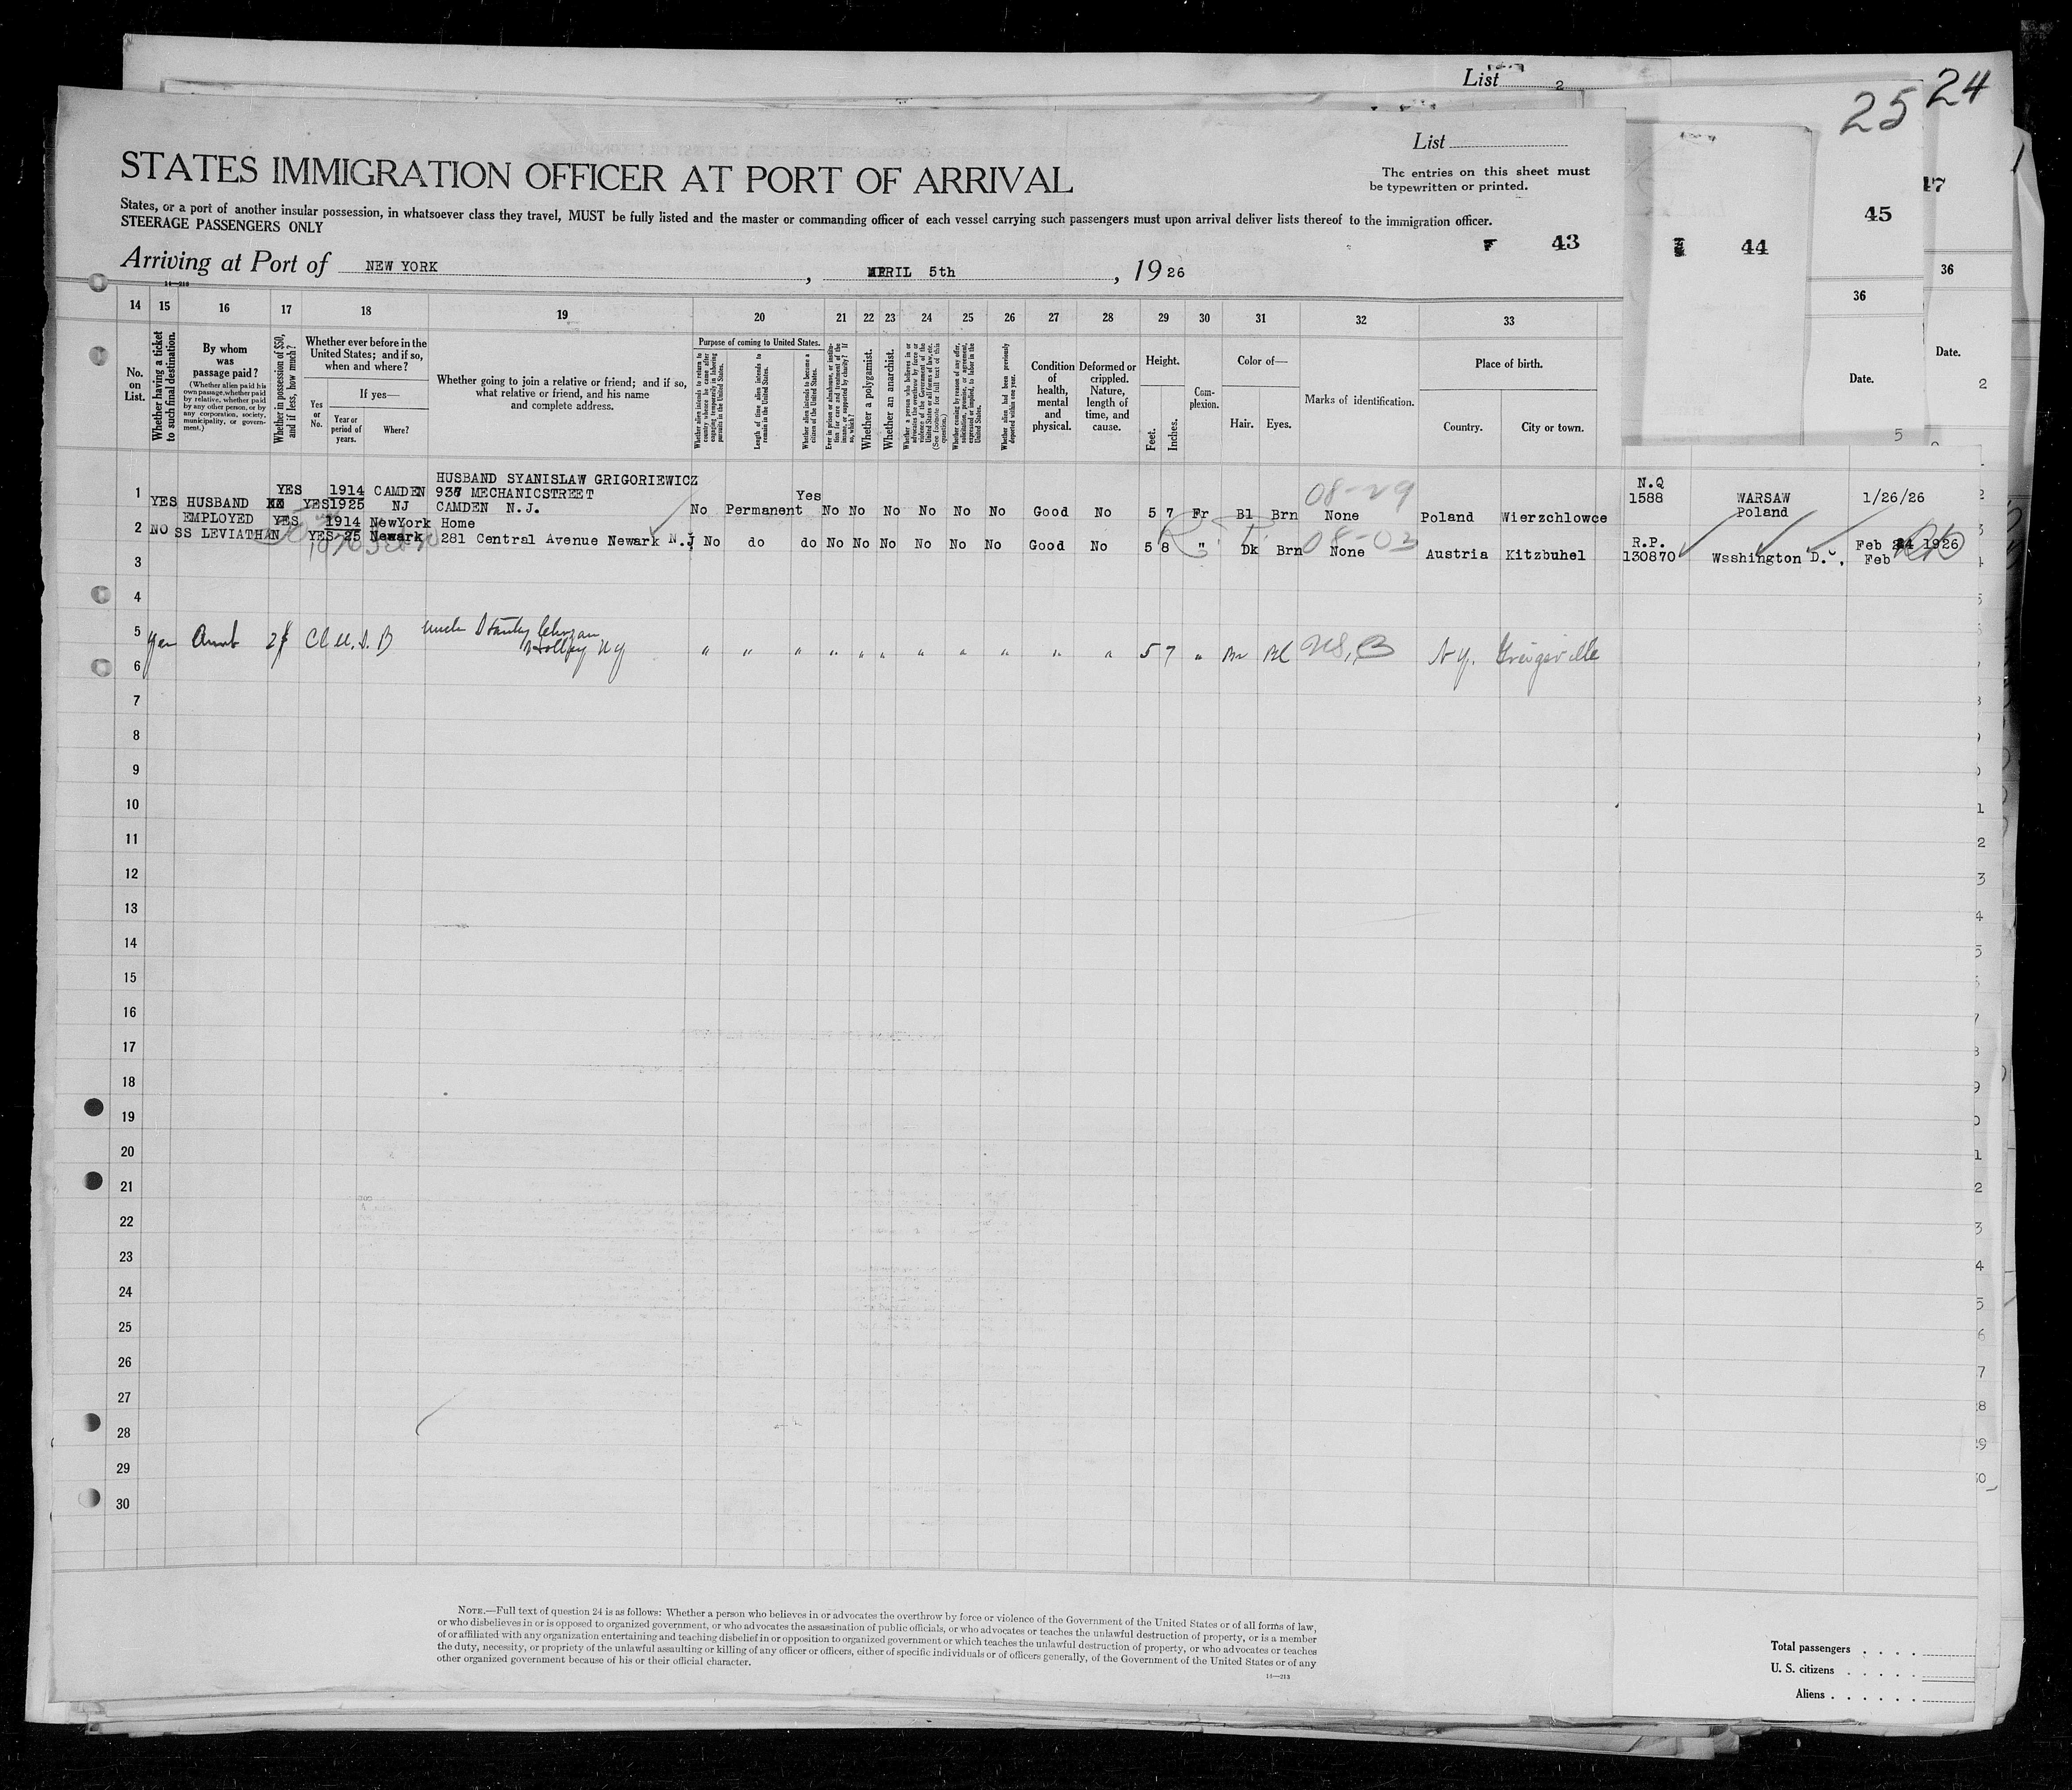 List 2
24
25
List
STATES IMMIGRATION OFFICER AT PORT OF ARRIVAL
The entries on this sheet must
be typewritten or printed.
States, or a port of another insular possession, in whatsoever class they travel, MUST be fully listed and the master or commanding officer of each vessel carrying such passengers must upon arrival deliver lists thereof to the immigration officer.
STEERAGE PASSENGERS ONLY
43
44
45
Arriving at Port of NEW YORK, APRIL 5th, 1926
14 15 16 17 18 19 20 21 22 23 24 25 26 27 28 29 30 31 32 33
36
36
No. on List.
Whether having a ticket to such final destination.
By whom was passage paid?
(Whether alien paid his own passage, whether paid by relative, whether paid by any other person, or by any corporation, society, municipality, or government.)
Whether in possession of $50, and if less, how much?
Whether ever before in the United States; and if so, when and where?
Yes or No.
If yes—
Year or period of years.
Where?
Whether going to join a relative or friend; and if so, what relative or friend, and his name and complete address.
Purpose of coming to United States.
Whether alien intends to return to country whence he came after engaging temporarily in laboring pursuits in the United States.
Length of time alien intends to remain in the United States.
Whether alien intends to become a citizen of the United States.
Ever in prison or almshouse, or institution for care and treatment of the insane, or supported by charity? If so, which?
Whether a polygamist.
Whether an anarchist.
Whether a person who believes in or advocates the overthrow by force or violence of the Government of the United States or all forms of law, etc. (See footnote for full text of this question.)
Whether coming by reason of any offer, solicitation, promise, or agreement, expressed or implied, to labor in the United States.
Whether alien had been previously deported within one year.
Condition of health, mental and physical.
Deformed or crippled. Nature, length of time, and cause.
Height.
Feet.
Inches.
Complexion.
Color of—
Hair.
Eyes.
Marks of identification.
Place of birth.
Country.
City or town.
Date.
Date.
HUSBAND SYANISLAW GRIGORIEWICZ
1 YES 1914 CAMDEN 937 MECHANICSTREET Yes 08-29 N.Q 1588 WARSAW 1/26/26
YES HUSBAND YES 1925 NJ CAMDEN N.J. No Permanent No No No No No No Good No 5 7 Fr Bl Brn None Poland Wierzchlowce Poland
2 EMPLOYED YES 1914 NewYork Home 08-03 R.P. Feb 24 1926
NO SS LEVIATHAN YES 25 Newark 281 Central Avenue Newark N.J No do do No No No No No No Good No 5 8 " Dk Brn None Austria Kitzbuhel 130870 Wsshington D. Feb
3
4
5 Aunt uncle Stanley
yes 5 7 " Br N.Y. Greigsville
6
7
8
9
10
11
12
13
14
15
16
17
18
19
20
21
22
23
24
25
26
27
28
29
30
NOTE.—Full text of question 24 is as follows: Whether a person who believes in or advocates the overthrow by force or violence of the Government of the United States or of all forms of law,
or who disbelieves in or is opposed to organized government, or who advocates the assassination of public officials, or who advocates or teaches the unlawful destruction of property, or is a member
of or affiliated with any organization entertaining and teaching disbelief in or opposition to organized government or which teaches the unlawful destruction of property, or who advocates or teaches
the duty, necessity, or propriety of the unlawful assaulting or killing of any officer or officers, either of specific individuals or of officers generally, of the Government of the United States or of any
other organized government because of his or their official character.
14—213
Total passengers
U. S. citizens
Aliens